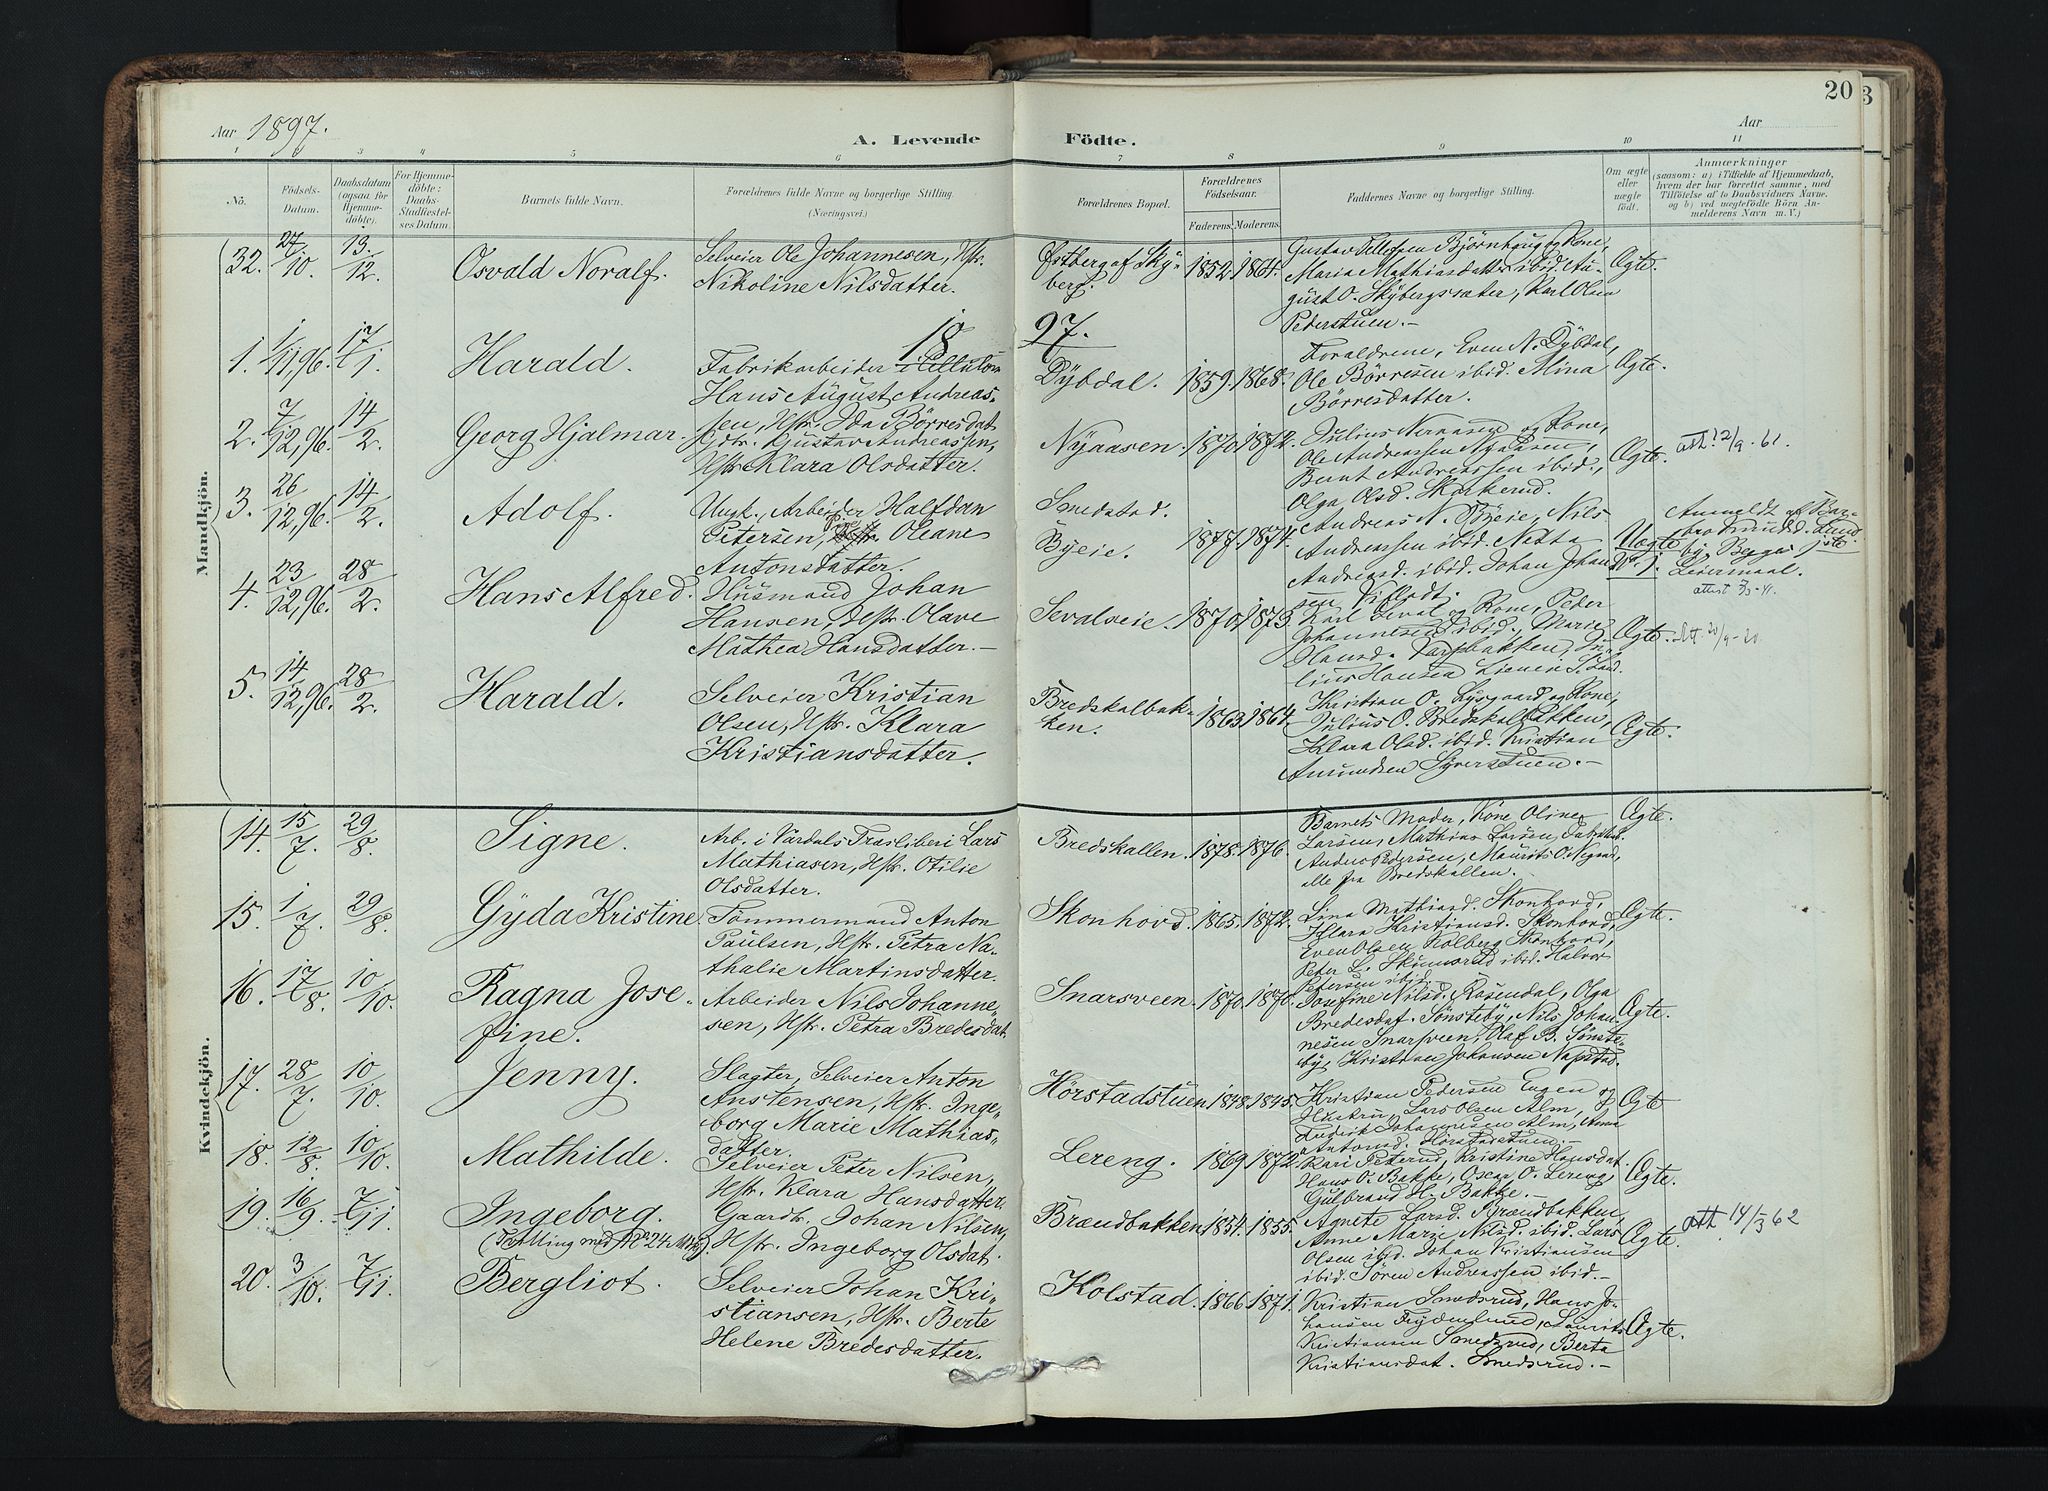 20
3
Aar 1897.
A. Levende Födte.
Aar
1 2 3 4 5 6 7 8 9 10 11
No.
Födsels-Datum.
Daabsdatum (ogsaa for Hjemme-döbte).
For Hjemme-döbte: Daabs-Stadfæstel-ses Datum.
Barnets fulde Navn.
Forældrenes fulde Navne og borgerlige Stilling. (Næringsvei.)
Forældrenes Bopæl.
Forældrenes Födselsaar.
Faderens. Moderens.
Faddernes Navne og borgerlige Stilling.
Om ægte eller uægte födt.
Anmærkninger
(saasom: a) i Tilfælde af Hjemmedaab, hvem der har forrettet samme, med Tilföielse af to Daabsvidners Navne. og b) ved uægtefödte Börn An-melderens Navn m. V.)
Mandkjön.
32. 27/10. 13./12. Osvald Noralf.
Selveier Ole Johannesen, Hstr.
Nikoline Nilsdatter.
Østberg af Sky-
berg.
1852. 1864.
Gustav Tellefsen Björnhaug og Kone,
Maria Mathiasdatter ibid. Au-
gust O. Skybergsæter, Karl Olsen
Pederstuen.-
Ægte.
18 97.
1. 1/11,96. 17/1 Harald.
Fabrikarbeider i Cellulosen
Hans August Andreas-
sen, Hstr. Ida Börresdat.
Dybdal. 1859. 1868.
Foraldrene, Even N. Dybdal,
Ole Börresen ibid. Mina
Börresdatter.
Ægte.
2. 7/12,96. 14/2. Georg Hjalmar.
Gdbr. Gustav Andreassen,
Hstr. Klara Olsdatter.
Nyaasen. 1870. 1872.
Ole Andreassen Nyaasen,
Bernt Andreassen ibid.,
Olga Olsd. Skarkerud.
Ægte. att. 12/9.61.
3. 26/12,96. 14/2. Adolf.
Ungk., Arbeider Halfdan
Petersen, Pige Oleane
Antonsdatter.
Smedstad.
Byeie. 1877. 1874.
Andreas N. Byeie, Nils
Andreassen ibid.
Andreasd. ibid. Johan Johan-
Uægte
Anmeldt af Bar-
bro Knudsd. Lund-
by, Begges 1ste
Leiermaal.
4. 23/12,96. 28/2. Hans Alfred.
Husmand Johan
Hansen, Hstr. Olave
Mathea Hansdatter.-
Sevalseie. 1870. 1873.
Karl Seval og Kone, Peder
Johannesen ibid., Marie
Ægte. Att. 20/9-20.
5. 14/12,96. 28/2. Harald.
Selveier Kristian
Olsen, Hstr. Klara
Kristiansdatter.
Bredskalbak-
ken. 1863. 1864.
Julius O. Bredskalbakken,
Klara Olsd. ibid. Kristian
Amundsen Syverstuen.-
Ægte.
Kvindekjön.
14. 15/7. 29/8. Signe.
Arb. i Vardals Træsliberi Lars
Mathiasen, Hstr. Otilie
Olsdatter.
Bredskallen. 1878. 1876.
Barnets Moder, Kone Oline
Larsen, Mathias Larsen,
Anders Pedersen, Maurits O.
alle fra Bredskallen.
Ægte.
15. 1/7. 29/8. Gyda Kristine
Tömmermand Anton
Paulsen, Hstr. Petra Na-
thalie Martinsdatter.
Skonhovd. 1865. 1872.
Lina Mathiasd. Skonhovd,
Klara Kristiansd. Skonhovd,
Even Olsen Kolberg Skonhovd,
Peter L. ibid. Halvor
Petersen ibid.
Ægte.
16. 17/8. 10/10. Ragna Jose-
fine.
Arbeider Nils Johanne-
sen, Hstr. Petra Bredesdat.
Snarsveen. 1870. 1870.
Josefine Nilsd. Rosendal, Olga
Bredesdat. Sönsteby, Nils Johan-
nesen Snarsveen, Olaf B. Sönste-
by, Kristian Johansen
Ægte.
17. 28/7. 10/10. Jenny.
Slagter, Selveier Anton
Anstensen, Hstr. Inge-
borg Marie Mathias-
datter.
Hörstadstuen 1848. 1845.
Kristian Pedersen Engen og
Hustru, Lars Olsen Alm,
Fredrik Johannesen Alm, Anna
Antonsd. Hörstadstuen.-
Ægte
18. 12/8. 10/10. Mathilde.
Selveier Peter Nilsen,
Hstr. Klara Hansdatter.
Lereng. 1869. 1872.
Kari Peterud, Kristine Hansdat.
Hans O. Bakke, Oscar O. Lereng,
Gulbrand H. Bakke.-
Ægte.
19. 16/9. 7/11. Ingeborg.
(Tvilling med No 24 Mdk)
Gaardbr. Johan Nilsen,
Hstr. Ingeborg Olsdat.
Brændbakken 1854. 1855.
Agnete Larsd. Brændbakken,
Anne Marie Nilsd. ibid. Lars
Olsen ibid. Johan Kristiansen
ibid. Sören Andreassen ibid.-
Ægte. att 14/3 62
20. 3/10. 7/11. Bergliot.
Selveier Johan Kri-
stiansen, Hstr. Berte
Helene Bredesdatter.
Kolstad. 1866. 1871.
Kristian Smedsrud, Hans Jo-
hansen Frydenlund, Laurits
Kristiansen Smedsrud, Berta
Kristiansdat. Smedsrud.-
Ægte.